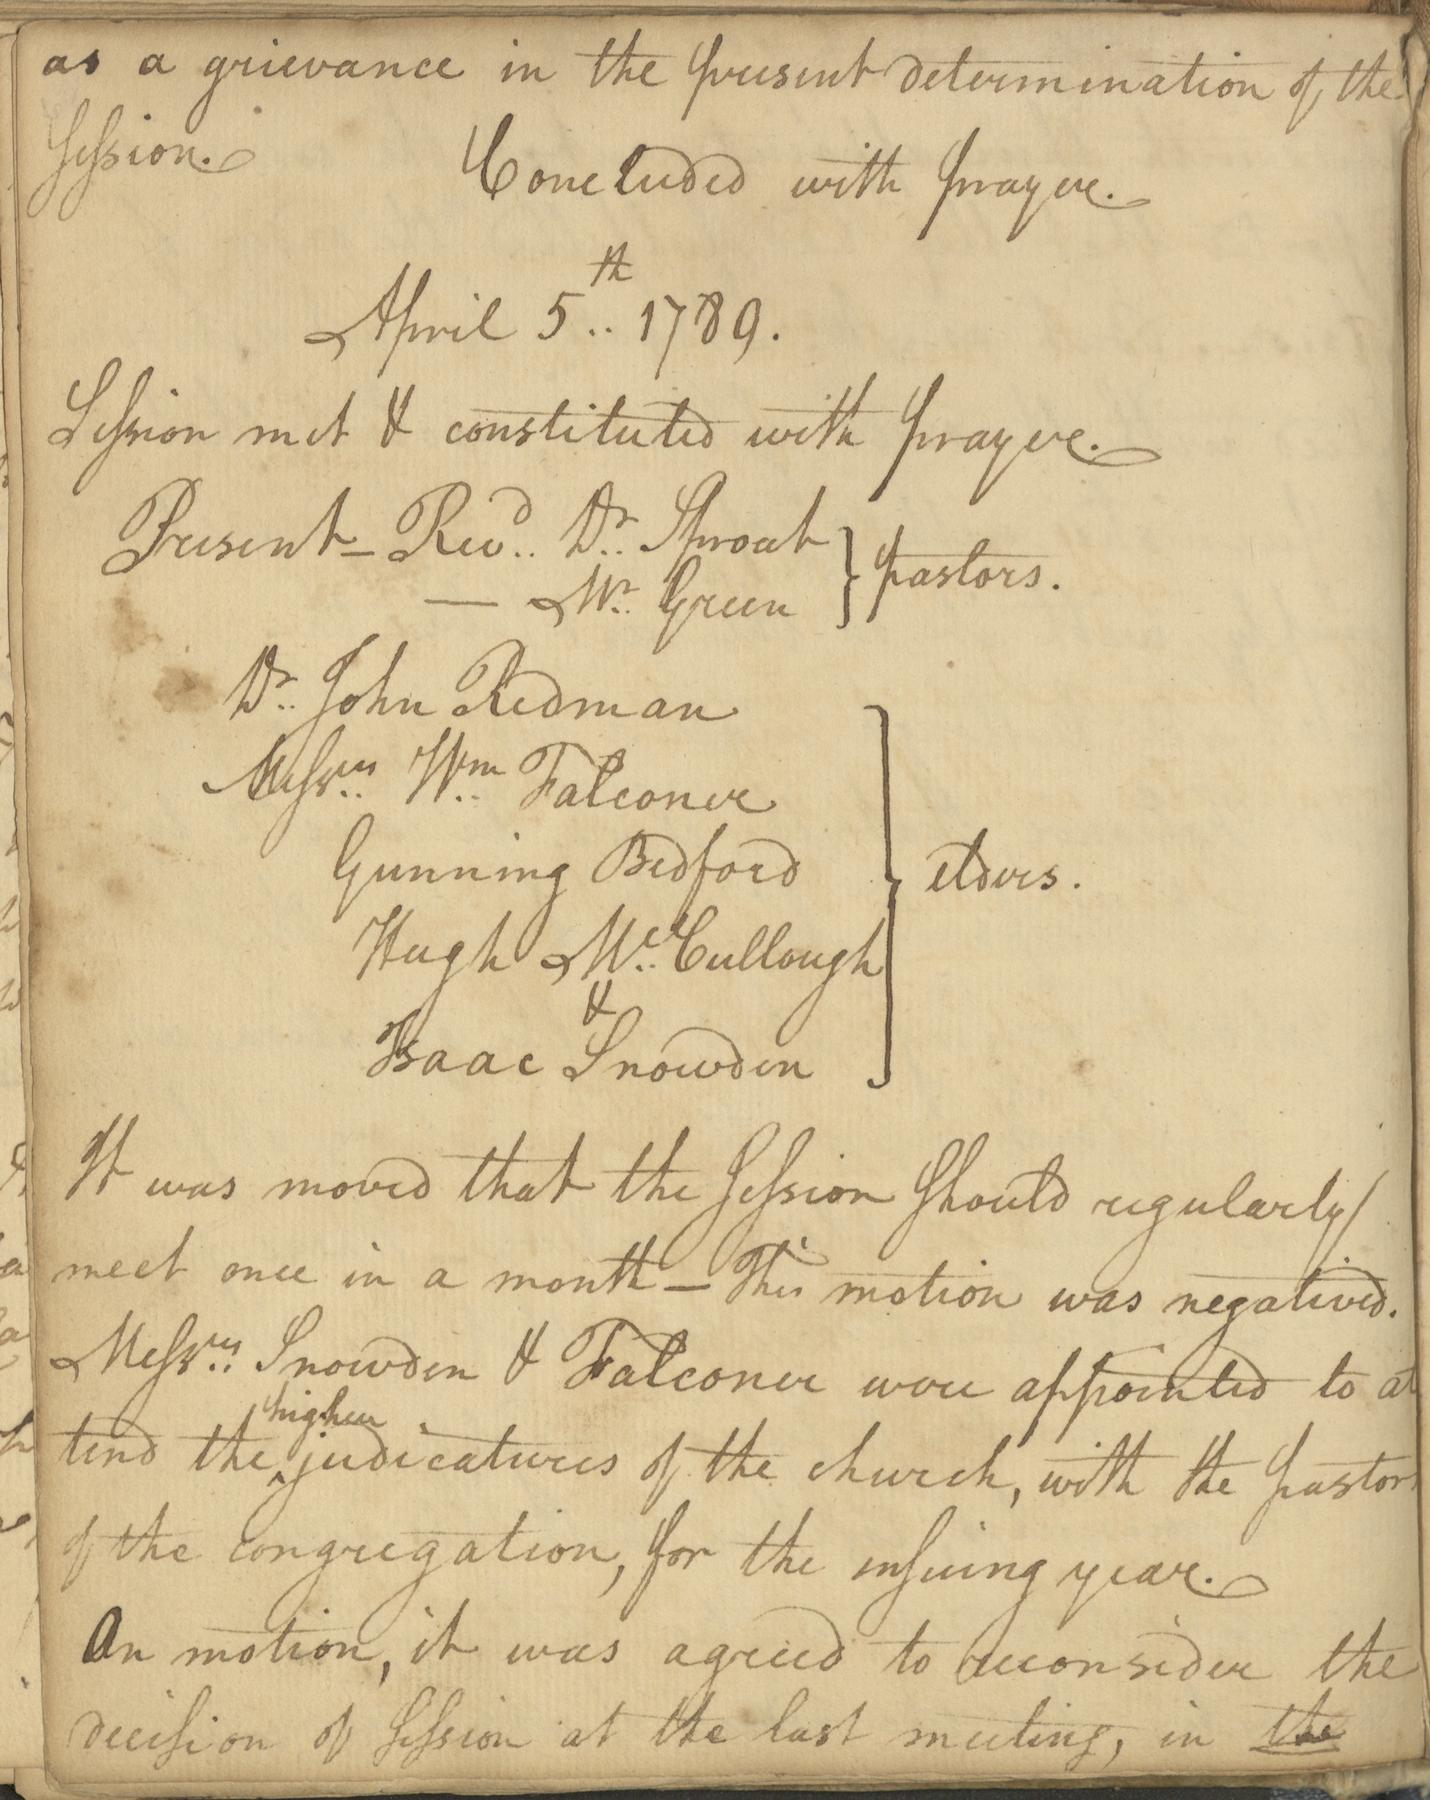 as a grievance in the present determination of the
session.
Concluded with prayer.
April 5th.. 1789.
Session met & constituted with prayer.
Present - Revd.. Dr.. Sproat } pastors.
— Mr.. Green
Dr.. John Redman
Messrs.. Wm.. Falconer
Gunning Bedford } elders.
Hugh Mc.. Cullough
&
Isaac Snowden
It was moved that the session should regularly
meet once in a month — This motion was negatived.
Messrs.. Snowden & Falconer were appointed to at
higher
tend the ^ judicatures of the church, with the pastors
of the congregation, for the insuing year.
On motion, it was agreed to reconsider the
decision of session at the last meeting, in the